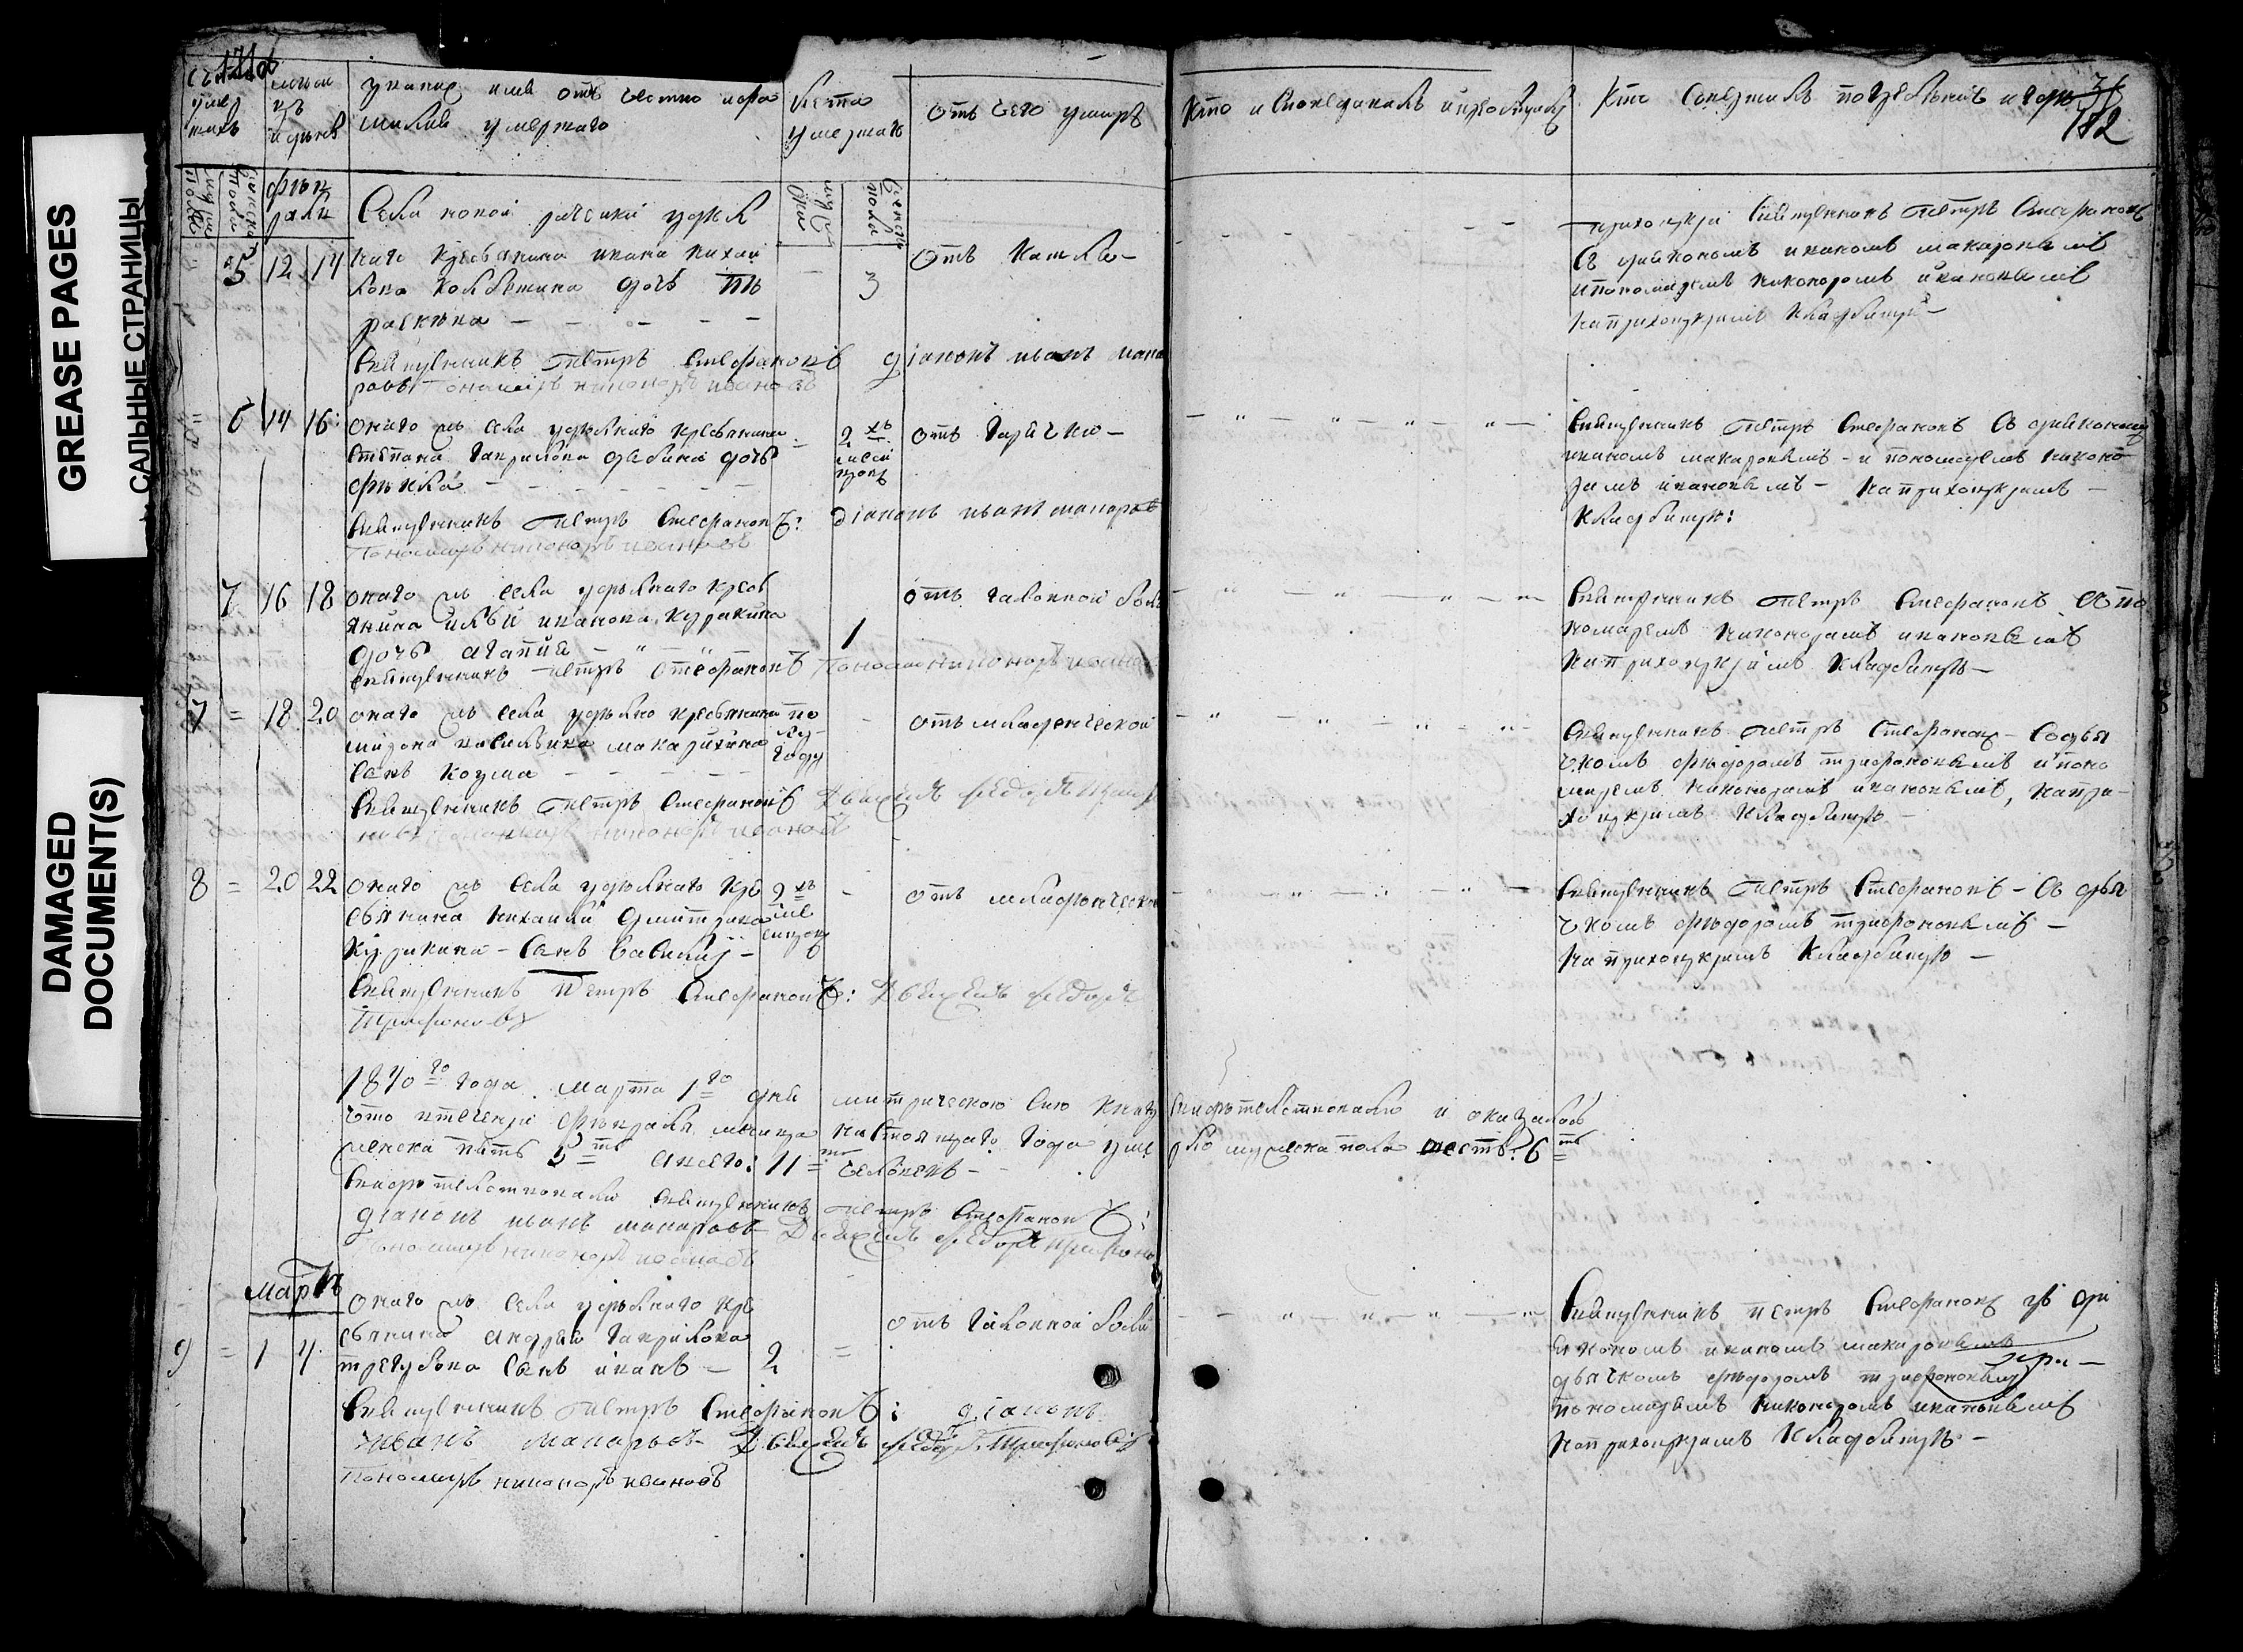 GREASE PAGES
САЛЬНЫЕ СТРАНИЦЫ
DAMAGED
DOCUMENT(S)
званіе имя отчество и фа
милія умершаго
лета
умершаго
отъ чего умеръ
Кто исповедовалъ и приобщалъ
Кто совершалъ погребеніе и где
182
февраля
Села новой рачейки удель
5 12 14 наго крестьянина ивана михай
лова дочь па
раскева
3
отъ кашлю
приходской священникъ Петръ Стефановъ
съ дьякономъ иваномъ макаровымъ
и пономаремъ никаноромъ ивановымъ
на приходскомъ кладбище
священникъ Петръ Стефановъ діаконъ иванъ мака
ровъ Пономарь никаноръ ивановъ
6 14 16 онаго жъ села удельнаго крестьянина
степана гаврилова дочь
фекла
2 хъ
отъ горячки
священникъ Петръ Стефановъ съ дьякономъ
иваномъ макаровымъ и пономаремъ никано
ромъ ивановымъ на приходскомъ
кладбище
священникъ Петръ Стефановъ: діаконъ иванъ макаровъ
Пономарь никаноръ ивановъ
7 16 18 онаго жъ села удельнаго крест
янина ильи иванова куракина
дочь агапия
1
отъ головной боли
священникъ Петръ Стефановъ съ по
номаремъ никаноромъ ивановымъ
на приходскомъ кладбище
священникъ Петръ Стефановъ Пономарь никаноръ иванов
7 = 18 20 онаго жъ села удельно крестьянина
мирона васильева
сынъ козма
по
лу
году
отъ младенческой
священникъ Петръ Стефановъ с дья
чкомъ федоромъ трифоновымъ и поно
маремъ никаноромъ ивановымъ, на при
ходскомъ кладбище
священникъ Петръ Стефановъ Дьячекъ федоръ Трифо
новъ Пономарь никаноръ ивановъ
8 = 20 22 онаго жъ села удельнаго кре
стьянина михаила дмитриева
куракина сынъ василий
2 хъ
отъ младенческой
священникъ Петръ Стефановъ съ дья
чкомъ федоромъ трифоновымъ
на приходскомъ кладбище
священникъ Петръ Стефановъ: Дьячекъ федоръ
Трифоновъ
1840го года марта 1го дня метрическою сию книгу свидетельствовали и оказалось
что в течении февраля месяца настоящаго года уме рло мужеска пола шесть 6ть
женска пять 5ть а всего: 11ть человекъ
свидетельствовали священникъ Петръ Стефановъ:
діаконъ иванъ макаровъ Дьячекъ федоръ Трифоно
Пономарь никаноръ ивановъ
Мартъ
9 = 1 4 онаго жъ села удельнаго кре
стьянина андрея гаврилова
трегубова сынъ иванъ
2
отъ головной боли
священникъ Петръ Стефановъ съ ди
яконом иваномъ макаровымъ
дьячкомъ федоромъ трифоновымъ
пономаремъ никаноромъ ивановымъ
на приходскомъ кладбище
священникъ Петръ Стефановъ: діаконъ
Иванъ макаровъ Дьячекъ федоръ Трифоновъ
Пономарь никаноръ ивановъ